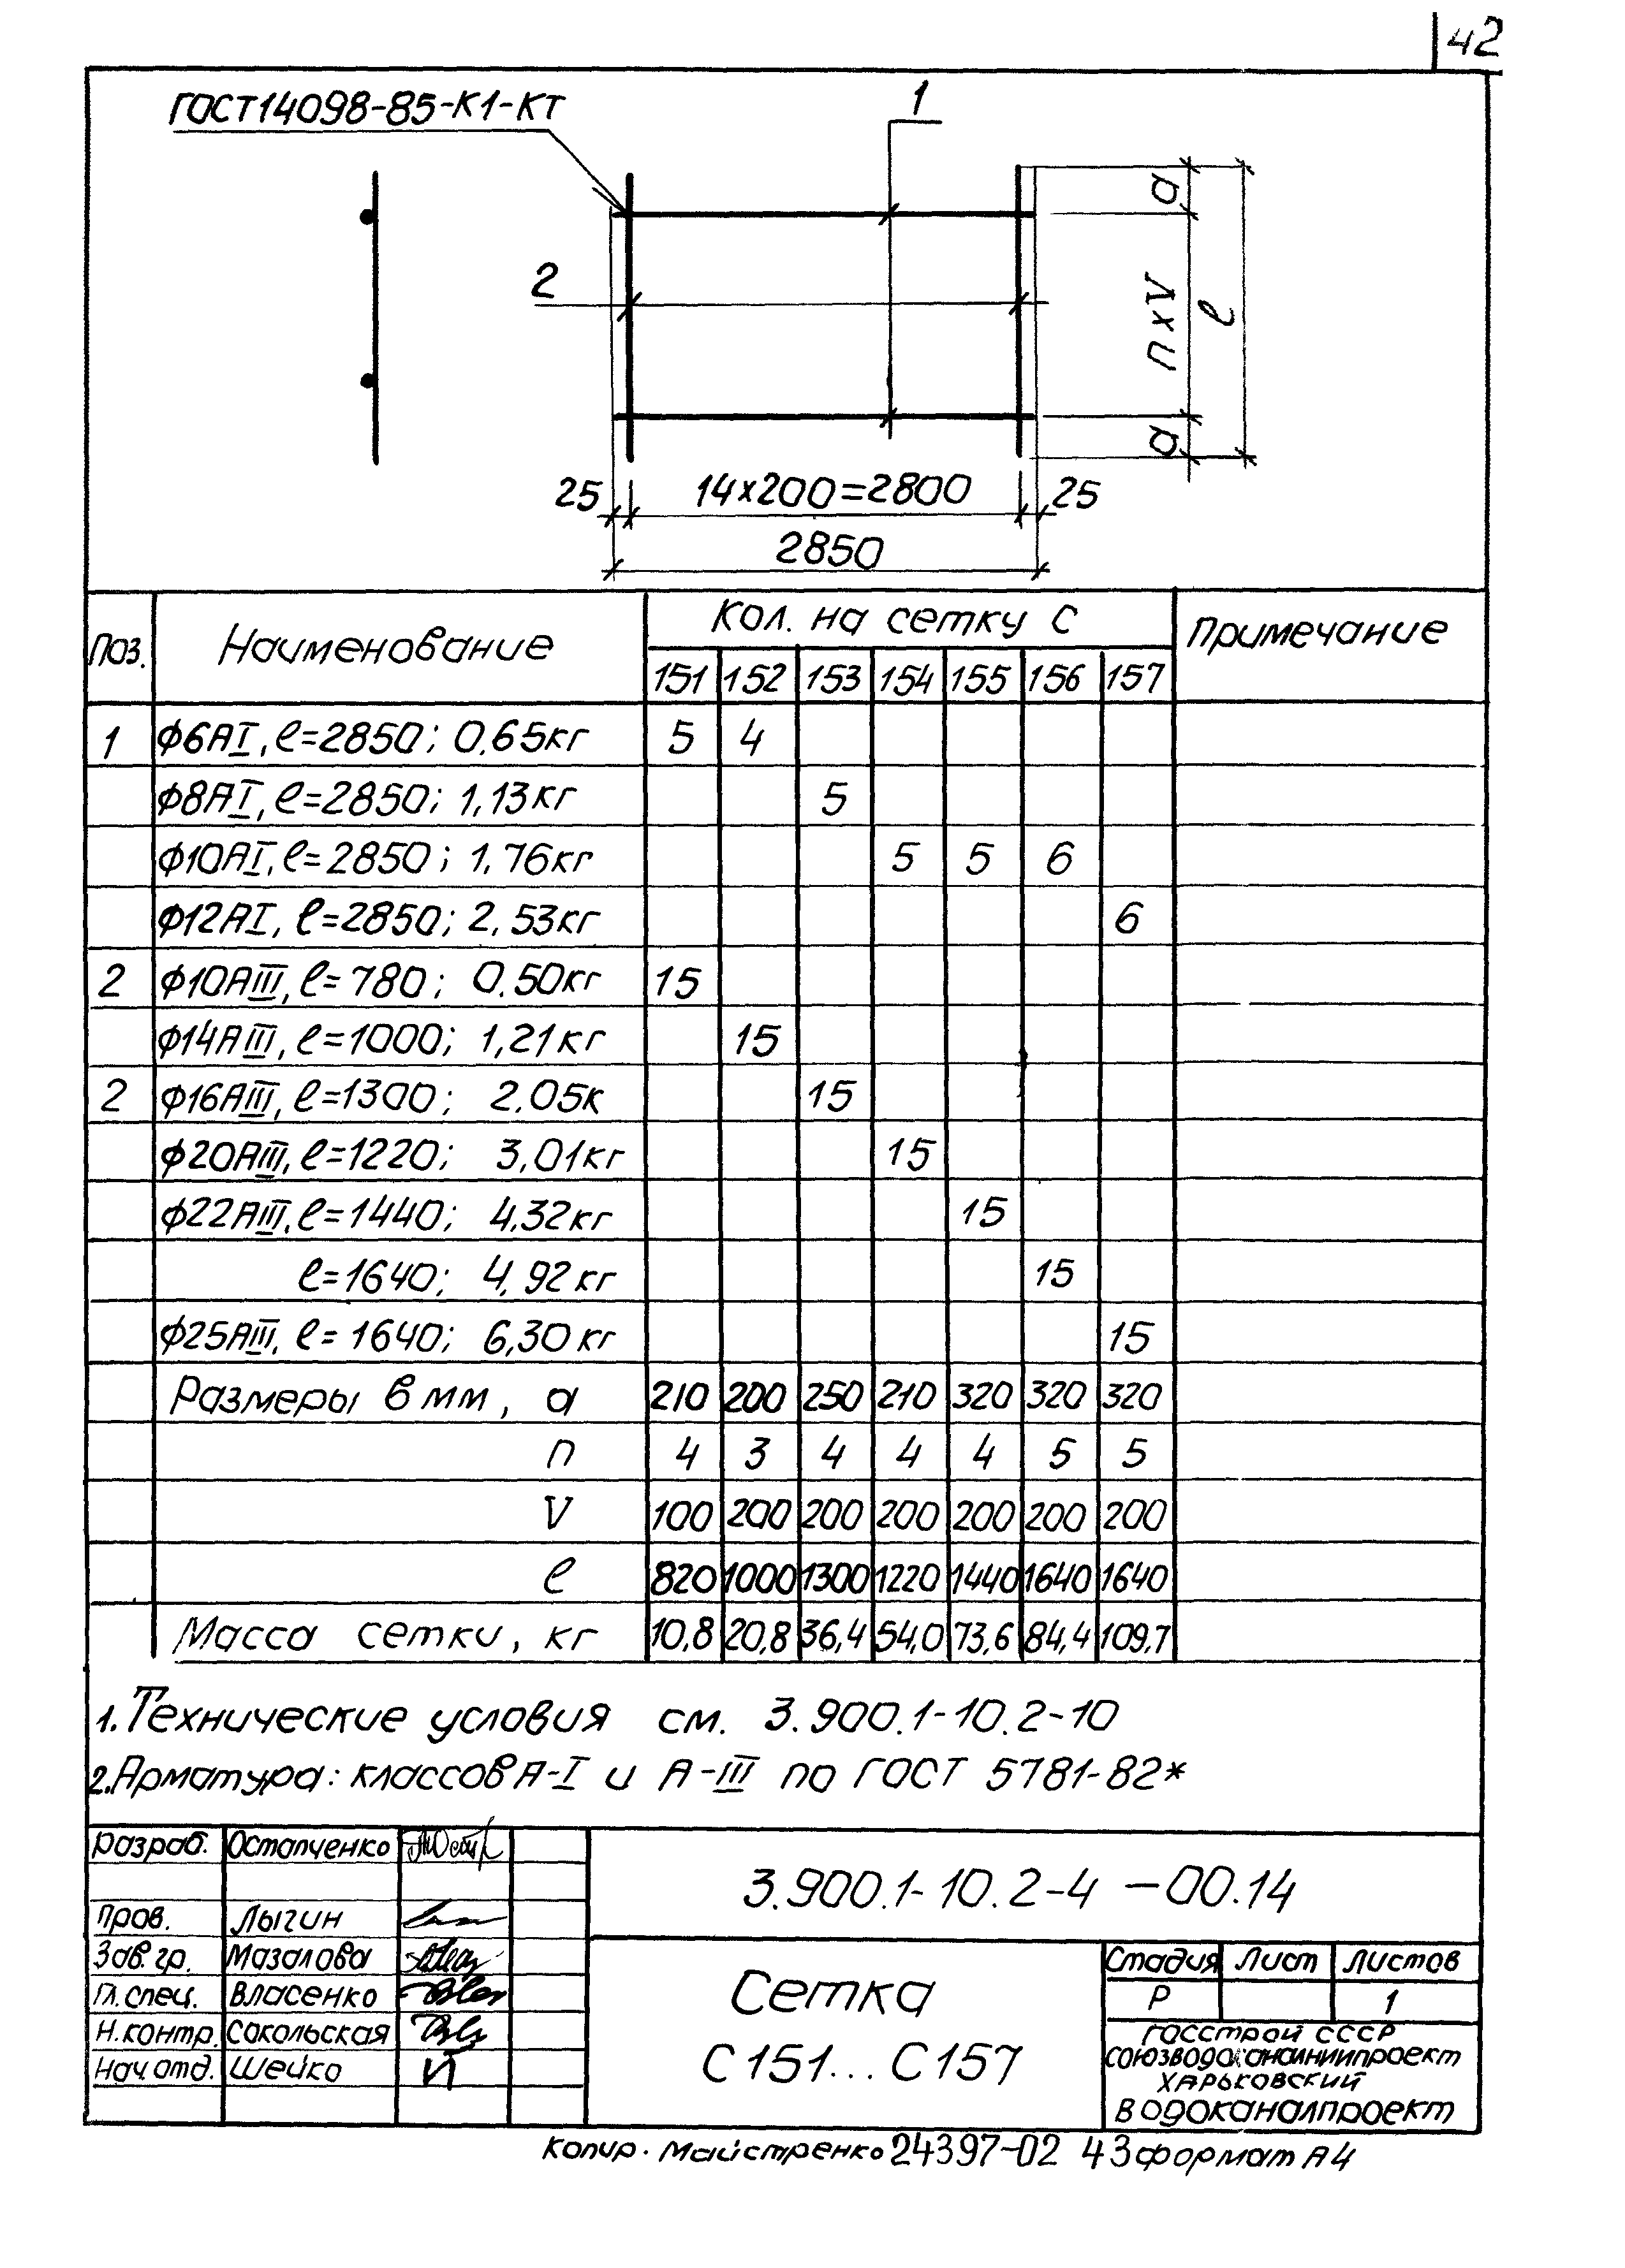 42
ГОСТ14098-85-К1-КТ
1
2
а
п x V
а
ℓ
25 14x200=2800 25
2850
Поз. Наименование Кол. на сетку С Примечание
151 152 153 154 155 156 157
1 ф6АI, ℓ=2850; 0,65кг 5 4
ф8АI, ℓ=2850; 1,13кг 5
ф10АI, ℓ=2850; 1,76кг 5 5 6
ф12АI, ℓ=2850; 2,53кг 6
2 ф10АIII, ℓ=780; 0,50кг 15
ф14АIII, ℓ=1000; 1,21кг 15
2 ф16АIII, ℓ=1300; 2,05к 15
ф20АIII, ℓ=1220; 3,01кг 15
ф22АIII, ℓ=1440; 4,32кг 15
ℓ=1640; 4,92кг 15
ф25АIII, ℓ=1640; 6,30кг 15
Размеры в мм, а 210 200 250 210 320 320 320
п 4 3 4 4 4 5 5
V 100 200 200 200 200 200 200
ℓ 820 1000 1300 1220 1440 1640 1640
Масса сетки, кг 10,8 20,8 36,4 54,0 73,6 84,4 109,7
1. Технические условия см. 3.900.1-10.2-10
2. Арматура: классов А-I и А-III по ГОСТ 5781-82*
Разраб. Остапченко
Пров. Лыгин
Зав. гр. Мазалова
Гл. спец. Власенко
Н. контр. Сокольская
Нач. отд. Шейко
3.900.1-10.2-4 -00.14
Сетка
С151... С157
Стадия Лист Листов
Р 1
Госстрой СССР
Союзводоканалниипроект
Харьковский
Водоканалпроект
Копир. Майстренко 24397-02 43 Формат А4